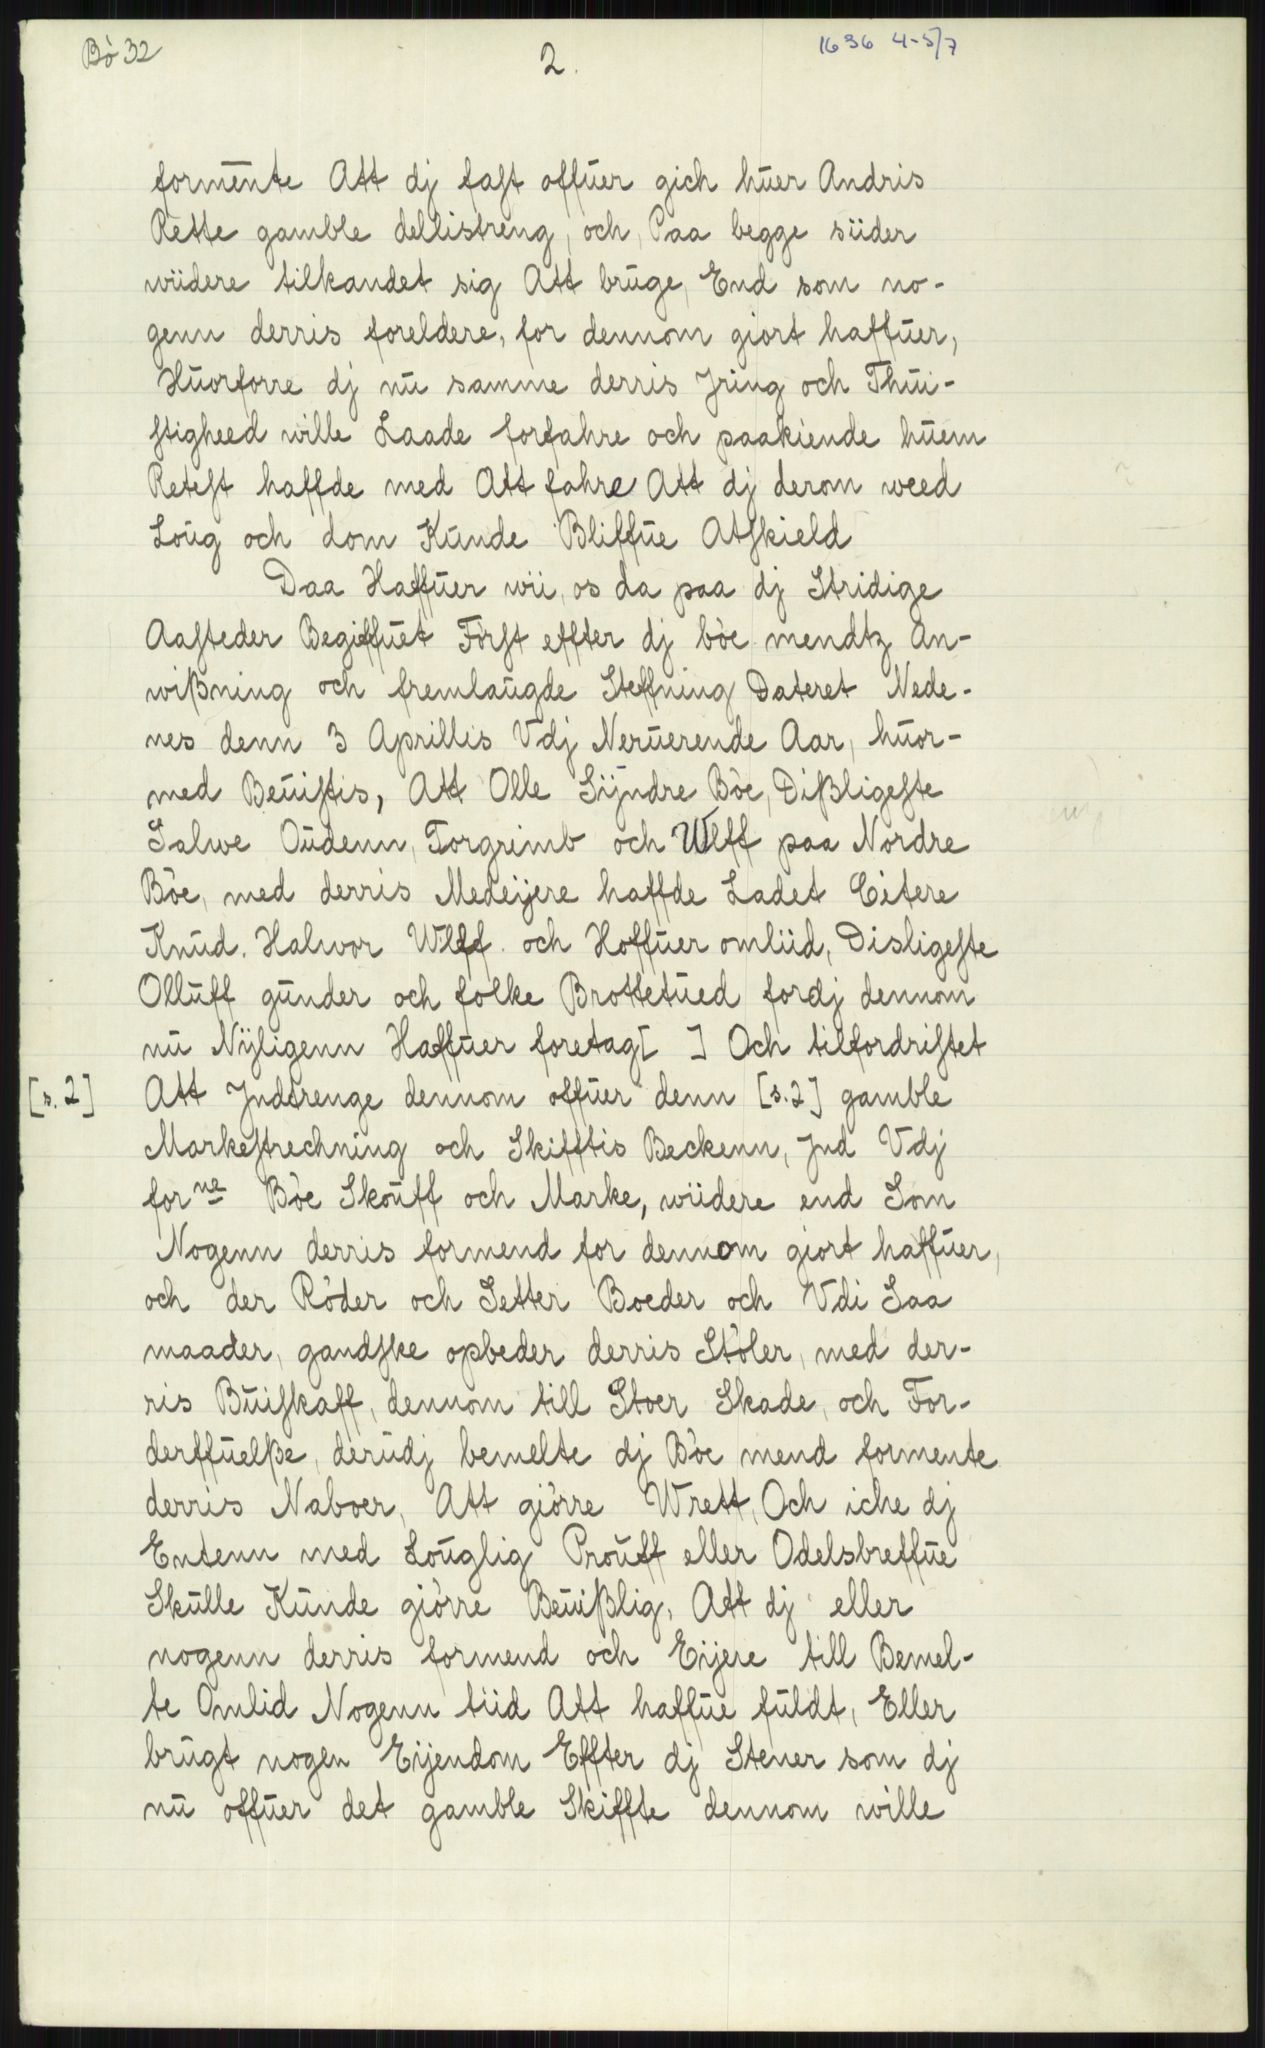 Bò 32
2.
1636 4-5/7
formente Att dj fast offuer gich huer Andris
Rette gamble dellistreng, och, Paa begge siider
wiidere tilkandet sig Att bruge, End som no-
genn derris foreldere, for dennom giort haffuer,
Huorforre dj nu samme derris Jring och Thui-
stigheed wille Laade forfahre och paakiende huem
Retest haffde med Att fahre Att dj derom weed
Loug och dom Kunde Bliffue Atskield
Daa Haffuer wii, os da paa dj Stridige
Aasteder Begiffuet Fòrst effter dj bòe mendtz An-
wißning och fremlaugde Steffning Dateret Nede-
nes denn 3 Aprillis Vdj Neruerende Aar, huor-
med Beuistis, Att Olle Sijndre Bòe, Dißligeste
Salwe Oudenn, Torgrimb och Wlff paa Nordre
Bòe, med derris Medeijere haffde Ladet Citere
Knud. Halvor Wlff. och Hoffuer omliid, Disligeste
Olluff gunder och folke Brottetued fordj dennom
nu Nÿligenn Haffuer foretag[ ] Och tilfordristet
[s. 2] Att Jndtrenge dennom offuer denn [s.2] gamble
Markestrechning och Skifftis Beckenn, Jnd Vdj
forne Bòe Skouff och Marke, wiidere end Som
Nogenn derris formend for dennom giort haffuer,
och der Ròder och Setter Boeder och Vdi Saa
maader, gandske opbeder derris Stòler, med der-
ris Buiskaff, dennom till Stoer Skade, och For-
derffuelße, derudj bemelte dj Bòe mend formente
derris Naboer, Att giòrre Wrett, Och iche dj
Entenn med Louglig Prouff eller Odelsbreffue
Skulle Kunde giòrre Beuißlig, Att dj eller
nogenn derris formend och Eijere till Bemel-
te Omlid Nogenn tiid Att haffue fuldt, Eller
brugt nogen Eijendom Effter dj Stener som dj
nu offuer det gamble Skiffte dennom wille